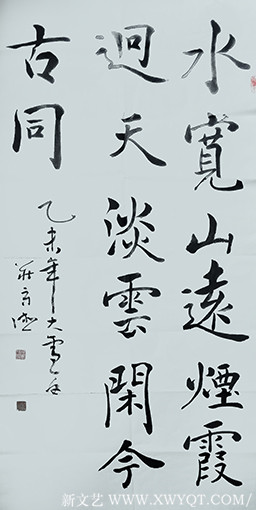 水寬山遠煙霞
迥天淡雲閑今
古同
乙未年大雪
新文艺 WWW.XWYQT.COM/